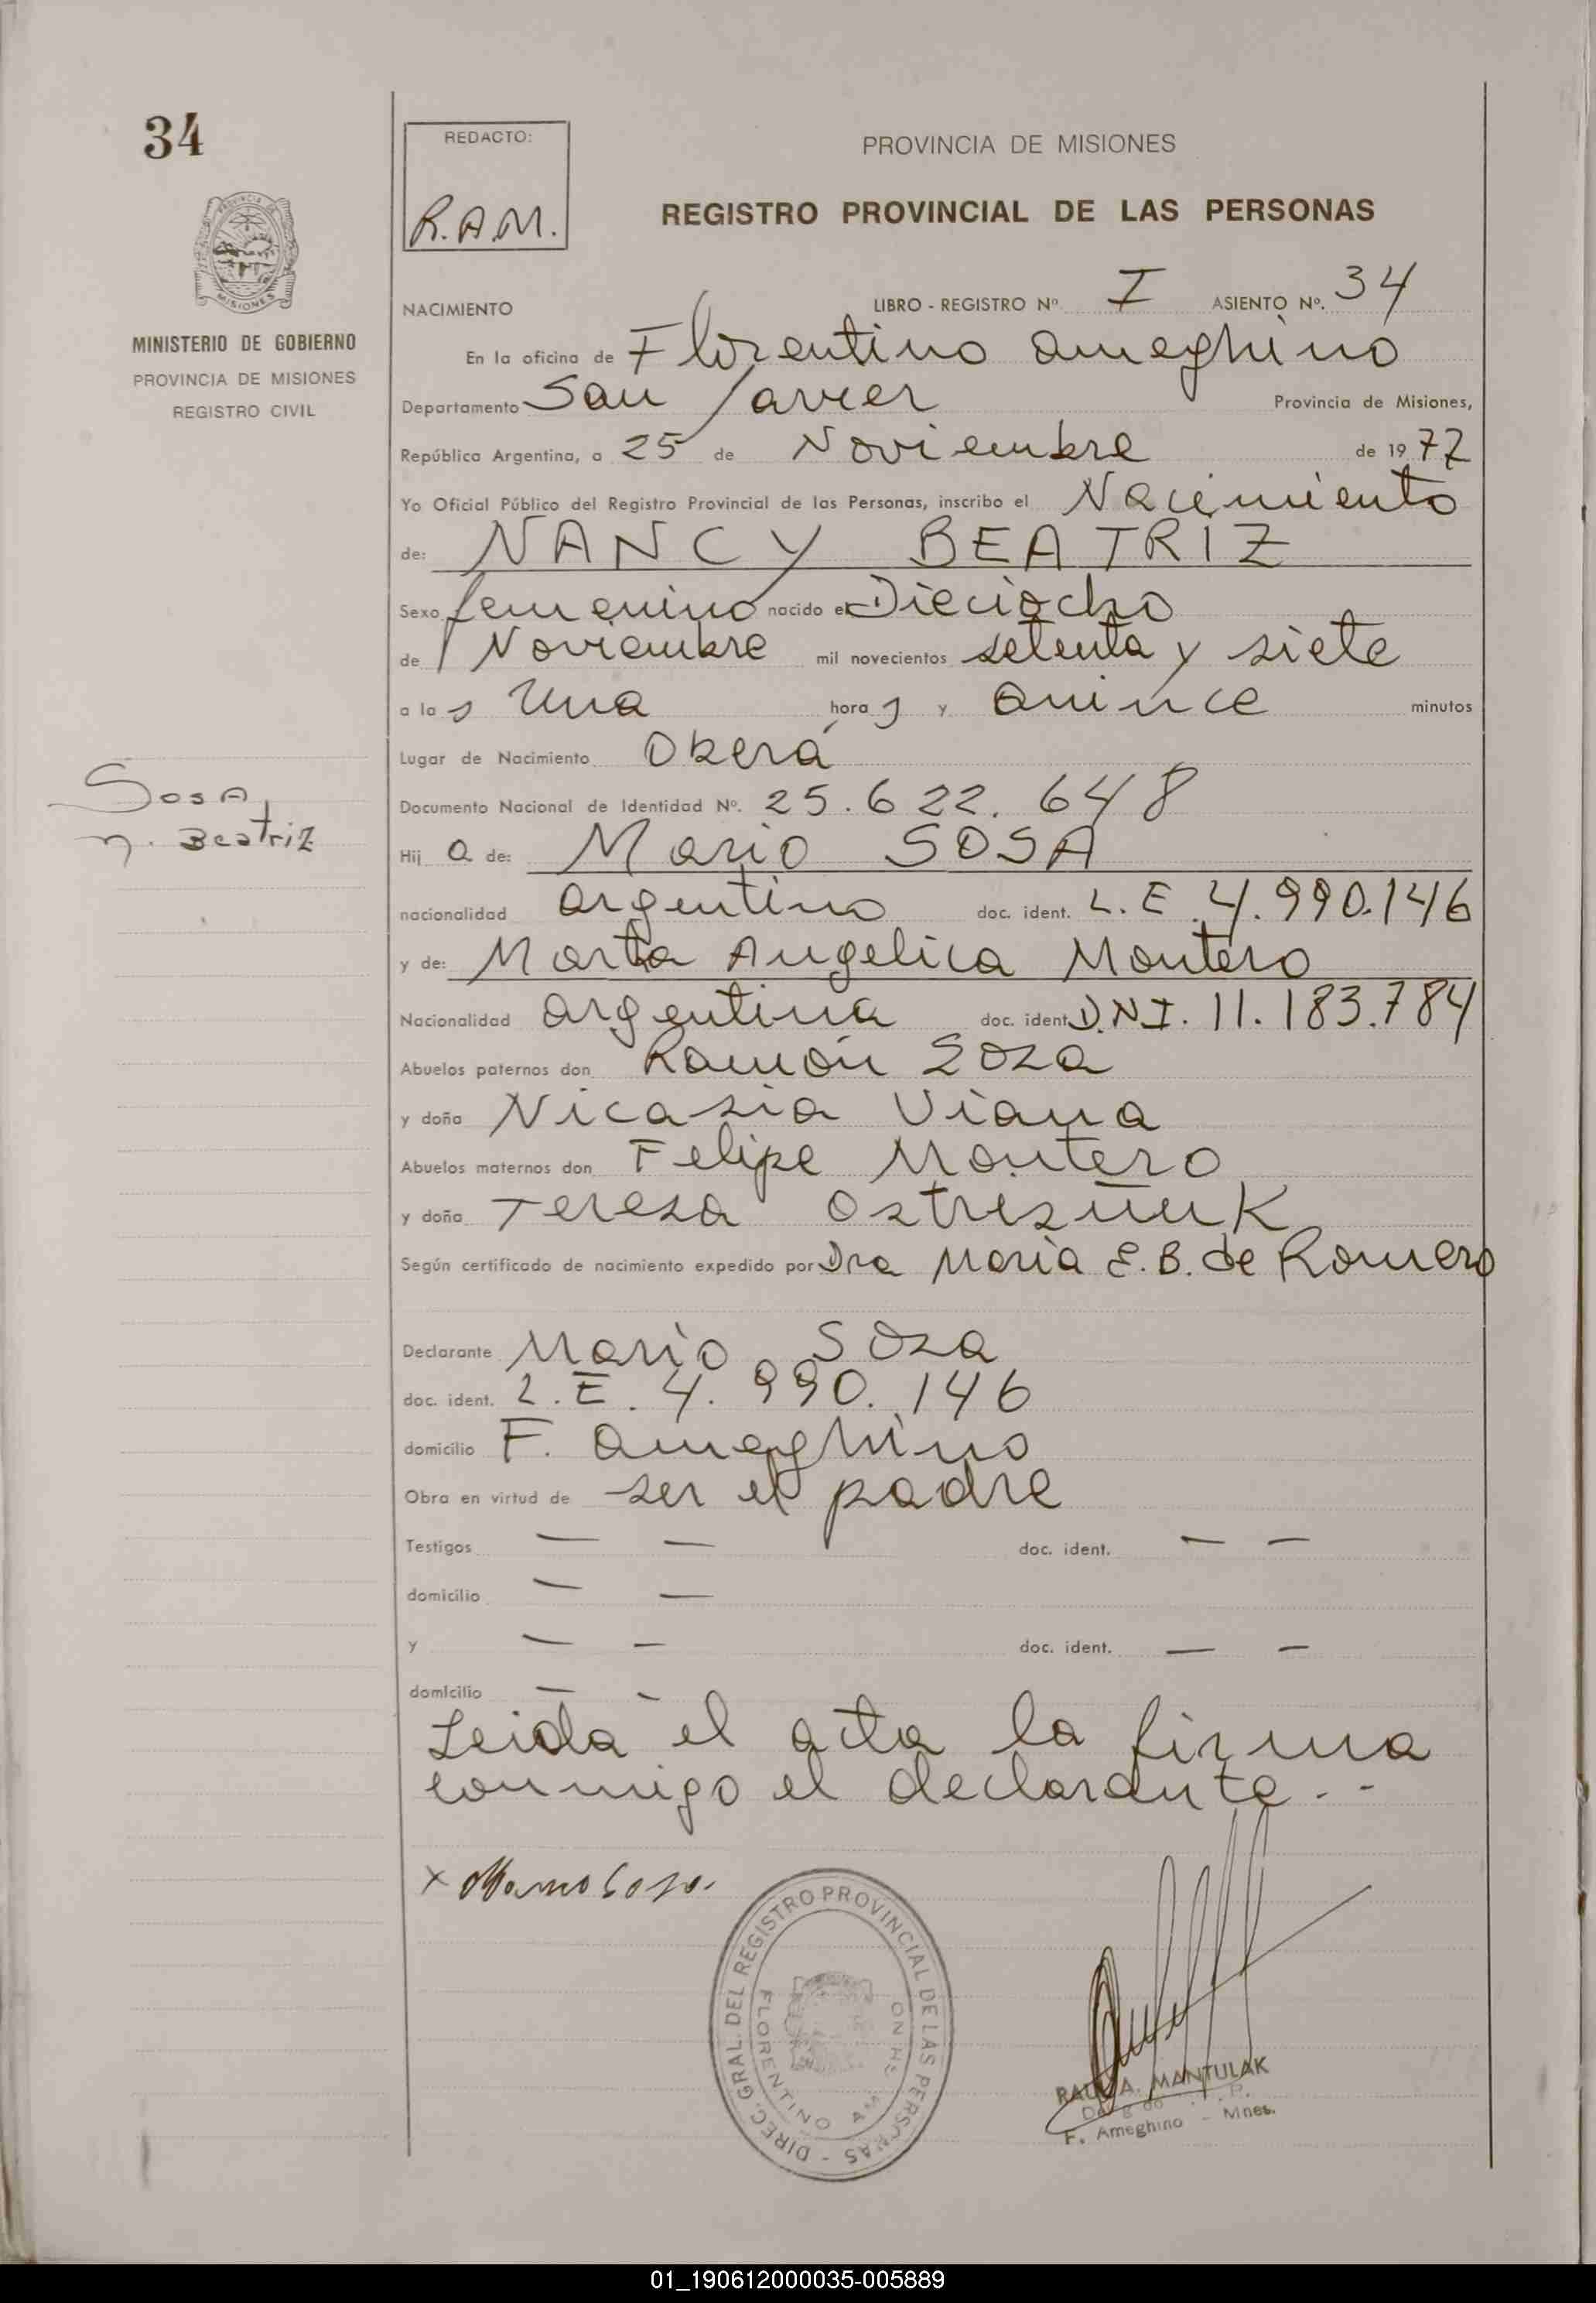 34
REDACTO:
R.A.M.
PROVINCIA DE MISIONES
REGISTRO PROVINCIAL DE LAS PERSONAS
MISIONES
MINISTERIO DE GOBIERNO
PROVINCIA DE MISIONES
REGISTRO CIVIL
NACIMIENTO LIBRO - REGISTRO Nº I ASIENTO Nº. 34
En la oficina de Florentino Ameghino
Departamento San Javier Provincia de Misiones,
República Argentina, a 25 de Noviembre de 1977
Yo Oficial Público del Registro Provincial de las Personas, inscribo el Nacimiento
de: NANCY BEATRIZ
Sexo femenino nacido el Dieciocho
de Noviembre mil novecientos setenta y siete
a las Una horas y Quince minutos
Lugar de Nacimiento Oberá
Sosa,
N. Beatriz
Documento Nacional de Identidad Nº. 25.622.648
Hija de: Mario SOSA
nacionalidad argentino doc. ident. L.E 4.990.146
y de: Marta Angelica Montero
Nacionalidad argentina doc. ident. D.N.I. 11.183.784
Abuelos paternos don Ramón Sosa
y doña Nicasia Viana
Abuelos maternos don Felipe Montero
y doña Teresa
Según certificado de nacimiento expedido por Dra Maria E.B. de Romero
Declarante Mario Sosa
doc. ident. L.E. 4.990.146
domicilio F. Ameghino
Obra en virtud de ser el padre
Testigos — — doc. ident. — —
domicilio — —
y — — doc. ident. — —
domicilio — -
Leida el acta la firma
conmigo el declarante.--
x Mario Sosa.
DIREC. GRAL. DEL REGISTRO PROVINCIAL DE LAS PERSONAS -
FLORENTINO AMEGHINO
RAUL A. MANTULAK
F. Ameghino - Mnes.
01_190612000035-005889